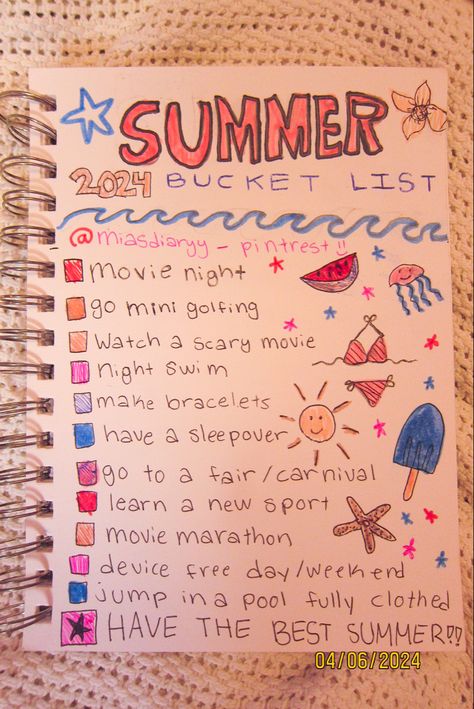 SUMMER
2024 BUCKET LIST
@miasdiaryy - pintrest!!
movie night
go mini golfing
Watch a scary movie
night swim
make bracelets
have a sleepover
go to a fair/carnival
learn a new sport
movie marathon
device free day/weekend
jump in a pool fully clothed
HAVE THE BEST SUMMER!!
04/06/2024